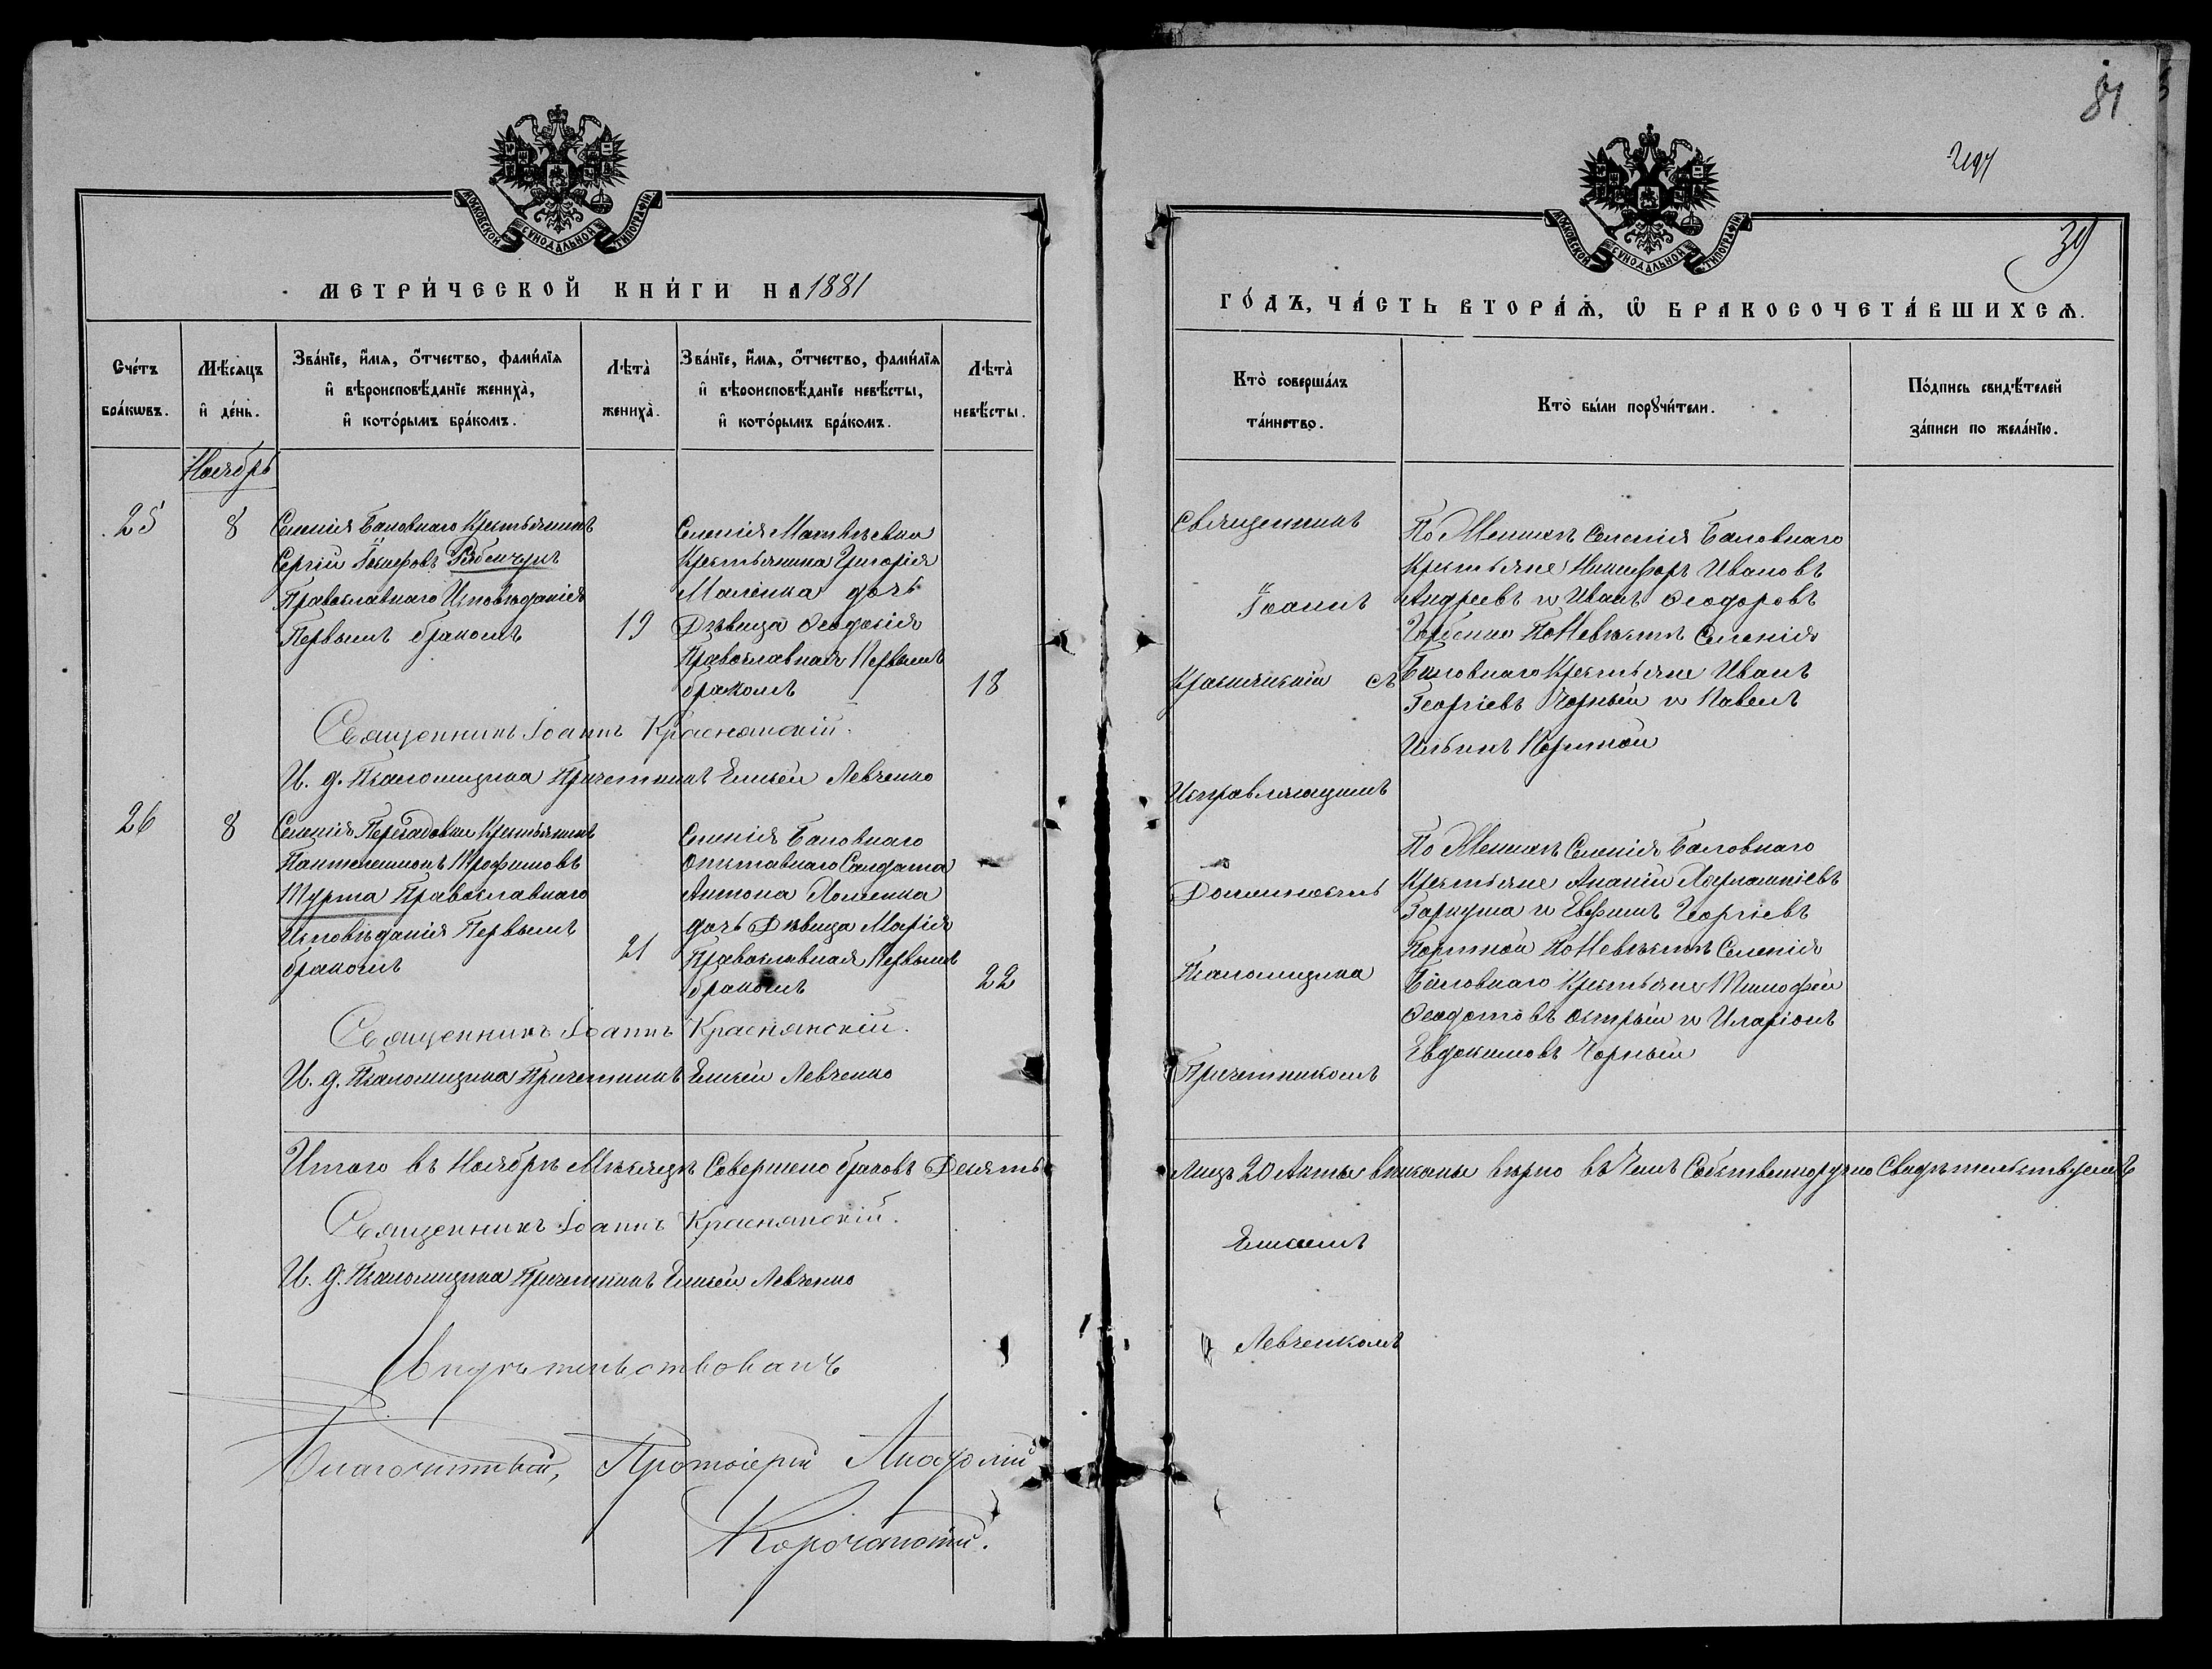 81
39
МОСКОВСКОЙ СѴНОДАЛЬНОЙ ТИПОГРАФІИ
МЕТРИ́ЧЕСКОЙ КНИ́ГИ НА 1881
Сче́тъ бра́кѡвъ.
Мѣ́сяцъ и҆ де́нь.
Зва́нїе, и҆́мѧ, ѻ҆́тчество, фами́лїѧ
и҆ вѣроисповѣ́данїе жениха̀,
и҆ кото́рымъ бра́комъ.
Лѣта̀ жениха̀.
Зва́нїе, и҆́мѧ, ѻ҆́тчество, фами́лїѧ
и҆ вѣроисповѣ́данїе невѣ́сты,
и҆ кото́рымъ бра́комъ.
Лѣта̀ невѣ́сты.
Ноябрь
25
8
Селенія Баловнаго Крестьянинъ
Сергій Іосифовъ Рябенчукъ
Православнаго Исповѣданія
Первымъ бракомъ
19
Селенія Матвѣевки
Крестьянина Григорія
Маленка дочь
Дѣвица Ѳеодосія
Православная Первымъ
бракомъ
18
Священникъ Іоаннъ Краснянскій.
И. д. Псаломщика Причетникъ Елисей Левченко
26
8
Селенія Пересадовки Крестьянинъ
Пантелеимонъ Трофимовъ
Турта Православнаго
Исповѣданія Первымъ
бракомъ
21
Селенія Баловнаго
Отставнаго Солдата
Антона Ломенка
дочь Дѣвица Марія
Православная Первымъ
бракомъ
22
Священникъ Іоаннъ Краснянскій.
И. д. Псаломщика Причетникъ Елисей Левченко
Итого въ Ноябрѣ Мѣсяцѣ Совершено браковъ Десять
Священникъ Іоаннъ Краснянскій.
И. д. Псаломщика Причетникъ Елисей Левченко
Свидѣтельствовалъ
Благочинный, Протоіерей
МОСКОВСКОЙ СѴНОДАЛЬНОЙ ТИПОГРАФІИ
ГО́ДЪ, ЧА́СТЬ ВТОРА́Ѧ, Ѡ҆ БРАКОСОЧЕТА́ВШИХСѦ.
Кто̀ соверша́лъ
та́инство.
Кто̀ бы́ли порꙋчи́тели.
По́дпись свидѣ́телей
за́писи по жела́нїю.
Священникъ
Іоаннъ
Краснянскій съ
Исправляющимъ
Должность
Псаломщика
Причетникомъ
По Женихѣ Селенія Баловнаго
Крестьяне Никифоръ Ивановъ
Андреевъ и Иванъ Ѳеодоровъ
Горбенко По Невѣстѣ Селенія
Баловнаго Крестьяне Иванъ
Георгіевъ Чорный и Павелъ
Ильинъ Портной
По Женихѣ Селенія Баловнаго
Крестьяне Ананій
Заркуша и Евфимъ Георгіевъ
Портной По Невѣстѣ Селенія
Баловнаго Крестьяне Тимофей
Ѳеодотовъ Острый и Иларіонъ
Евдокимовъ Чорный
Лицъ 20 Акты вписаны вѣрно въ Чемъ Собственноручно Свидѣтельствуемъ
Елисеемъ
Левченкомъ